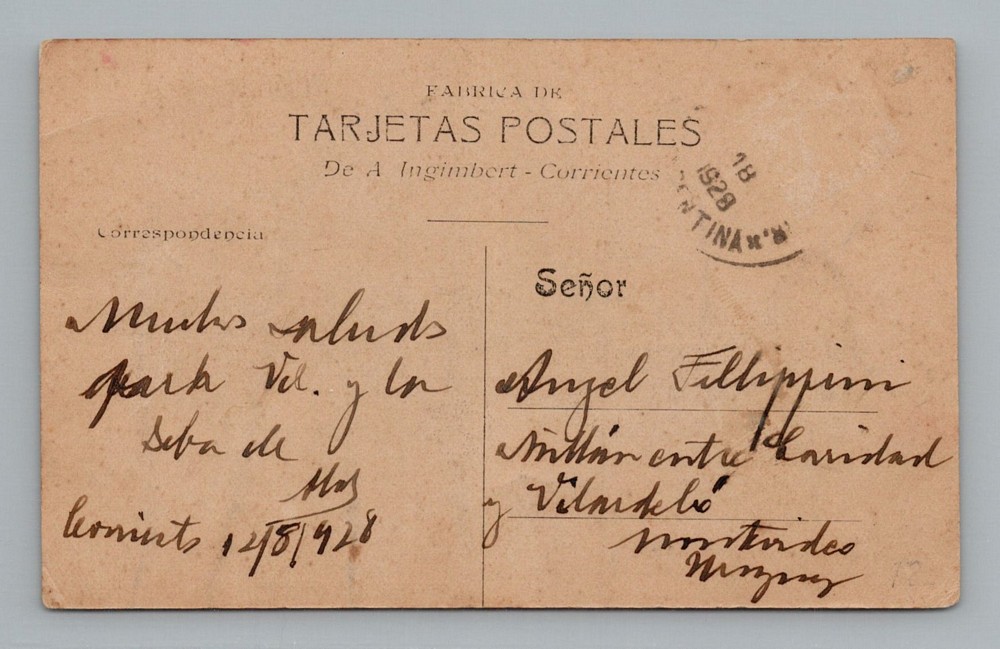 FABRICA DE
TARJETAS POSTALES
De A Ingimbert - Corrientes
18
1928
ENTINA
Correspondencia
Señor
Muchos saludos
para Vd. y los
de
Corrients 12/8/928
Angel Fillippini
Millán entre Caridad
y Vilardebó
Montevideo
Uruguay